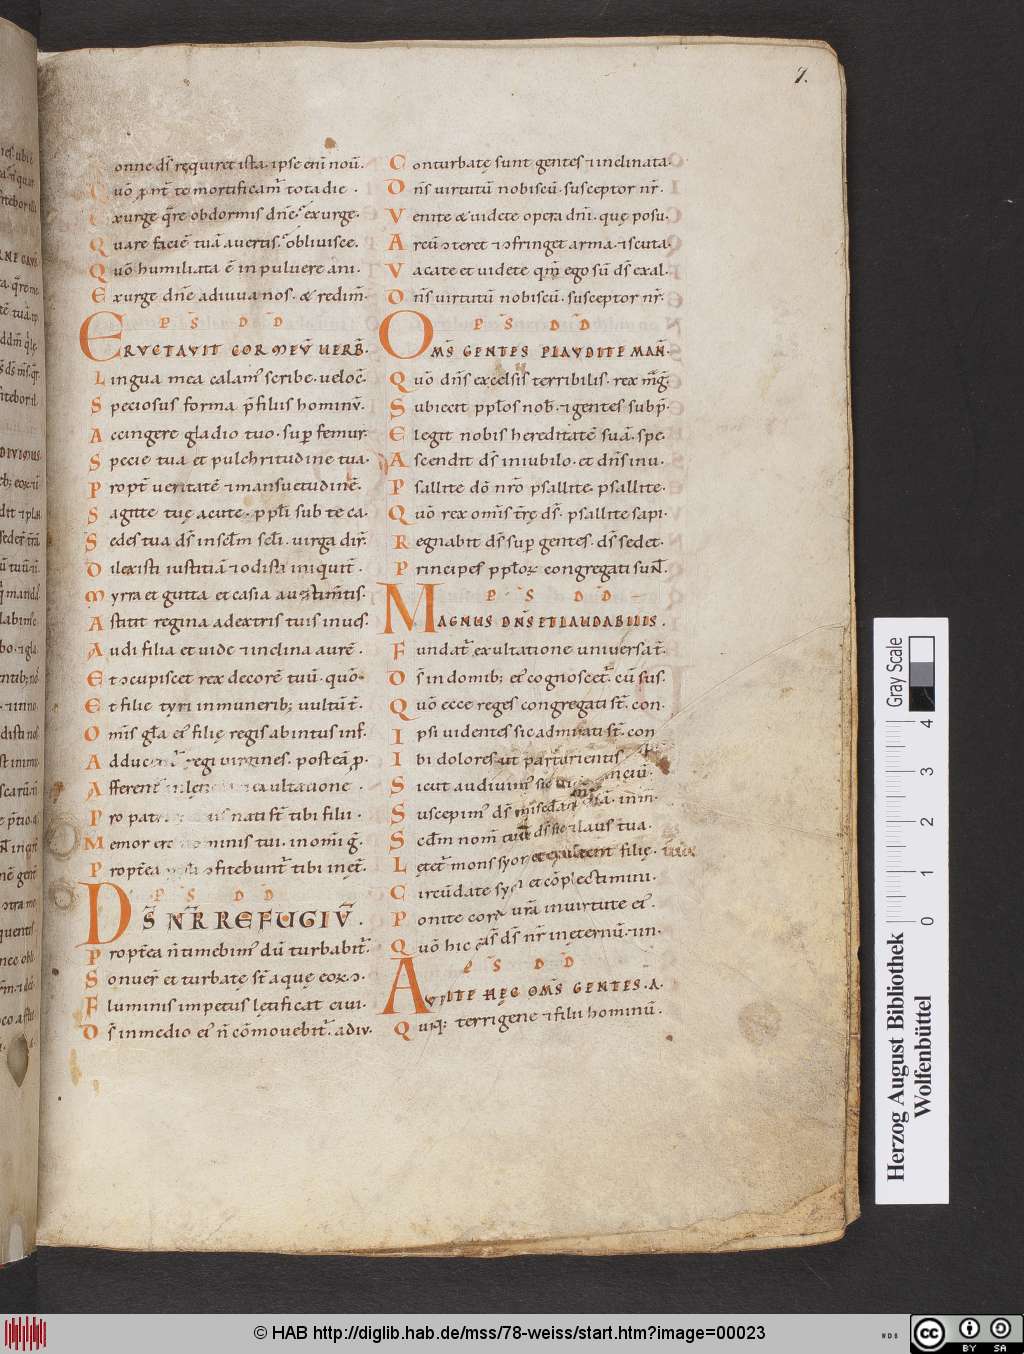 7.
onne ds̄ requiret ista · ipse enī nou̅ ·
Quō ꝓpt̅ te mortificam̅ tota die ·
Exurge q̄re obdormis dn̄e · exurge ·
Quare faciē tuā avertis · oblivisce ·
Quō humiliata ē in pulvere ani ·
Exurge dn̄e adiuva nos · & redim̄ ·
PS DD
ERUCTAVIT COR MEŪ VERB̄ ·
Lingua mea calam᷒ scribe · veloc̄ ·
Speciosus forma p̄ filius hominū ·
Accingere gladio tuo · suꝑ femur ·
Specie tua et pulchritudine tua ·
Propt̄ veritatē ⁊ mansuetudinē ·
Sagitte tuę acute · ppl̄i sub te ca ·
Sedes tua ds̄ in scl̄m scl̄i · virga dir̄ ·
Dilexisti iustitiā ⁊ odisti iniquit̄ ·
Myrra et gutta et casia a vestim̄tis ·
Astitit regina a dextris tuis in ves̄ ·
Audi filia et vide ⁊ inclina aurē ·
Et ↄcupiscet rex decorē tuū · quō ·
Et filie tyri in munerib; vultūt̄ ·
Om̄is gl̄a ei᷒ filię regis ab intus inf̄ ·
Adducent᷒ regi virgines · post eā ꝓ ·
Afferent᷒ exultatione ·
Pro patribus nati st̄ tibi filii ·
Memor ero nominis tui · in om̄i ḡ ·
Propt̄ea ppl̄i ↄfitebunt᷒ tibi inęt̄ ·
PS DD
DS̄ NR̄ REFUGIŪ ·
Propt̄ea n̄ timebim᷒ dū turbabit᷒ ·
Sonuer̄ et turbatę st̄ aque eoꝝ · ↄ ·
Fluminis impetus lętificat civi ·
Ds̄ in medio ei᷒ n̄ cōmovebit᷒ · adiv ·
Conturbatę sunt gentes ⁊ inclinata ·
Dn̄s virtutū nobiscū · susceptor nr̄ ·
Venite & videte opera dn̄i · quę posu ·
Arcū ↄteret ⁊ ↄfringet arma · ⁊ scuta ·
Vacate et videte qm̄ ego sū ds̄ exal ·
Dn̄s virtutū nobiscū · susceptor nr̄ ·
PS DD
OMS̄ GENTES PLAUDITE MAN̄ ·
Quō dn̄s excelsis terribilis · rex mḡ ·
Subiecit ppl̄os nob̄ · ⁊ gentes sub p̄ ·
Elegit nobis hereditatē suā · spe ·
Ascendit ds̄ in iubilo · et dn̄s in v ·
Psallite dō nr̄o psallite · psallite ·
Quō rex om̄is t̄rę ds̄ · psallite sapi ·
Regnabit ds̄ suꝑ gentes · ds̄ sedet ·
Principes ppl̄oꝝ congregati sun̄ ·
PS DD
MAGNUS DN̄S ET LAUDABILIS ·
Fundat᷒ exultatione universat̄ ·
Ds̄ in domib; ei᷒ cognoscet᷒ · cū sus ·
Quō ecce reges congregati st̄ · con ·
Ipsi videntes sic admirati st̄ · con
Ibi dolores ut parturientis
Sicut audivim᷒ sic
Suscepim᷒ ds̄ misc̄dam
Scdm̄ nom̄ tuū ds̄ sic ⁊ laus tua ·
Lętet᷒ mons syon et exultent filię ·
Circūdate syon et cōplectimini ·
Ponite cor vr̄a in virtute ei᷒ ·
Quō hic ds̄ nr̄ in ęternū · in ·
PS DD
AUDITE HĘC OMS̄ GENTES · A ·
Quiq; terrigene ⁊ filii hominū ·
Gray Scale
0 1 2 3 4
Herzog August Bibliothek
Wolfenbüttel
© HAB http://diglib.hab.de/mss/78-weiss/start.htm?image=00023
cc BY SA